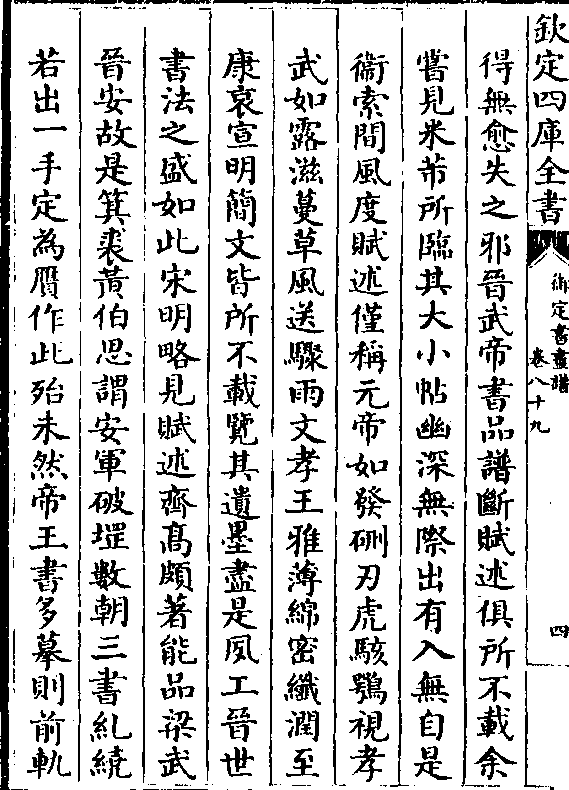 欽定四庫全書
御定書畫譜
卷八十九
四
得無愈失之邪晉武帝書品譜斷賦述俱所不載余
嘗見米芾所臨其大小帖幽深無際出有入無自是
衞索間風度賦述僅稱元帝如發硎刃虎駭鶚視孝
武如露滋蔓草風送驟雨文孝王雅薄綿密纖潤至
康哀宣明簡文皆所不載覽其遺墨盡是夙工晉世
書法之盛如此宋明略見賦述齊髙頗著能品梁武
晉安故是箕裘黃伯思謂安軍破堽數朝三書糺繞
若出一手定為贋作此殆未然帝王書多摹則前軌